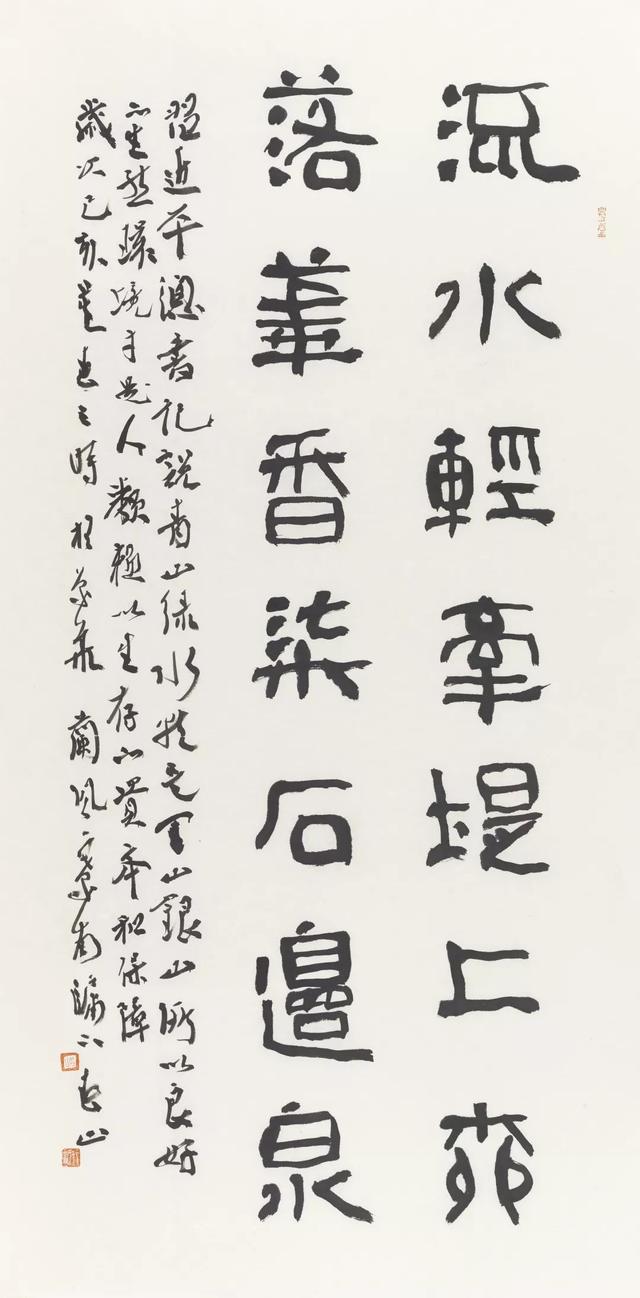 流水輕牽堤上柳
落華香染石邊泉
習近平總書記說青山绿水就是金山銀山所以良好
的生態環境才是人類賴以生存的資本和保障
歲次己亥之時於京華蘭風南牖下山